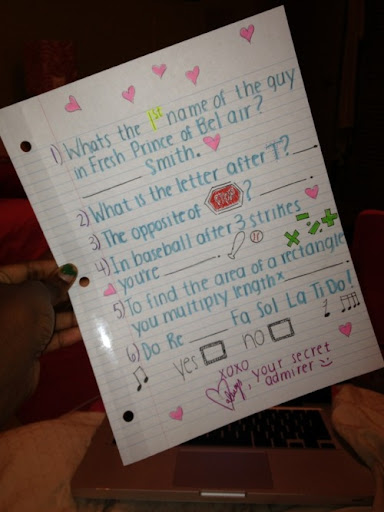 1) Whats the 1st name of the guy
in Fresh Prince of Bel air?
______ Smith.
2) What is the letter after "T"? ____
3) The opposite of STOP? ____.
4) In baseball after 3 strikes
you're ____.
5) To find the area of a rectangle
you multiply length x ____.
6) Do Re ____ Fa Sol La Ti Do!
yes no
xoxo
, your secret
admirer